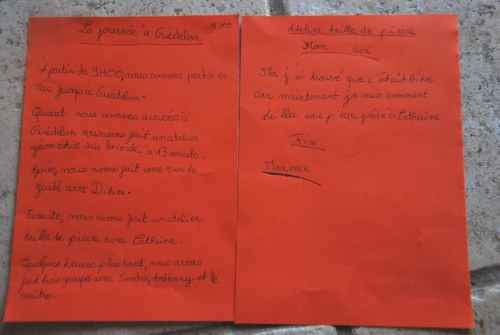 La journée à Guédelon
A partir de 9H00, nous sommes partis en
car jusqu'à Guédelon.
Quand nous sommes arrivés à
Guédelon nous avons fait un atelier
géométrie sur la corde à
Après, nous avons fait une visite
guidé avec Didier.
Ensuite, nous avons fait un atelier
taille de pierre avec Cathrine.
Quelques heures plus tard, nous avons
fait trois groupes avec Sandra, Anthony et le
maître.
Atelier taille de pierre
Mon avi
Moi j'ai trouvé que c'était bien
car maintenant je sais comment
tailler une pierre grâce à Cathrine.
Fin
Maxence